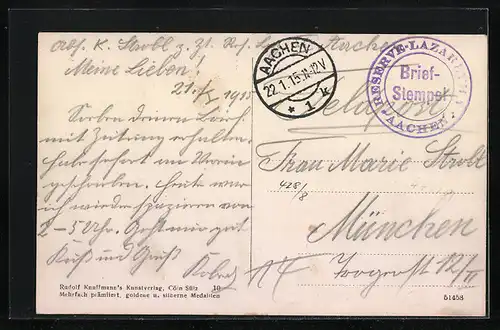 Abs. K. Strobl z. Zt. Res. Laz. Aachen
Meine Lieben!
21/I 1915
Soeben deinen Brief
mit Zeitung erhalten.
habe sofort an Verein
geschrieben. heute war
ich wieder spazieren von
2-5 Uhr. Geht mir gut
Kuß und Gruß
AACHEN
22.1.15. 11-12V
* 1 k
RESERVE-LAZARETT
Brief-
Stempel
AACHEN
Feldpost
Frau Marie Strobl
428/8
München
12/II
Rudolf Kauffmann's Kunstverlag, Cöln Sülz 10
Mehrfach prämiiert, goldene u. silberne Medaillen
51458